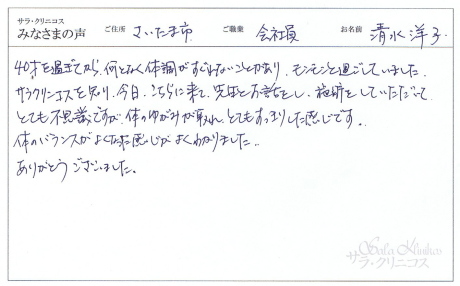 サラ・クリニコス
みなさまの声
ご住所 さいたま市 ご職業 会社員 お名前 清水洋子
40才を過ぎてから、何となく体調がすぐれないことがあり、モンモンと過ごしていました。
サラクリニコスを知り、今日、こちらに来て、先生とお話をし、施術をしていただいて
とても不思議ですが、体のゆがみが取れ、とてもすっきりした感じです。
体のバランスがよくなった感じがよくわかりました。
ありがとうございました。
Sala Klinikos
サラ・クリニコス